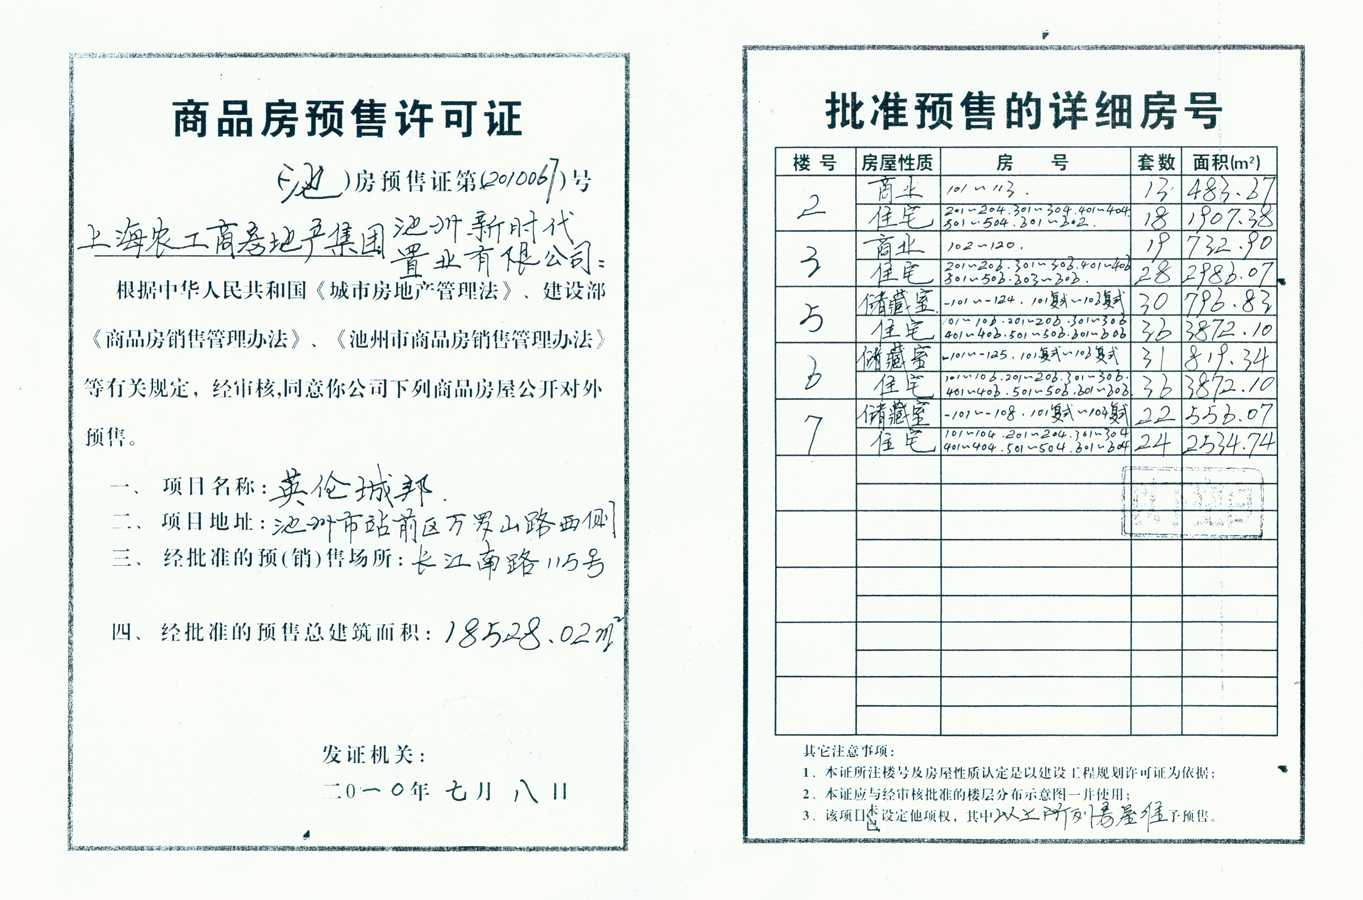 商品房预售许可证
(池)房预售证第(2010067)号
上海农工商房地产集团池州新时代
置业有限公司:
根据中华人民共和国《城市房地产管理法》、建设部
《商品房销售管理办法》、《池州市商品房销售管理办法》
等有关规定，经审核,同意你公司下列商品房屋公开对外
预售。
一、项目名称:英伦城邦.
二、项目地址:池州市站前区万罗山路西侧
三、经批准的预(销)售场所:长江南路115号
四、经批准的预售总建筑面积:18528.02m²
发证机关:
二0一0年七月八日
批准预售的详细房号
楼号 房屋性质 房号 套数 面积(m²)
2 商业 101~113. 13 483.37
住宅 201~204.301~304.401~404 501~504.301~302. 18 1907.38
3 商业 102~120. 19 732.90
住宅 201~206.301~306.401~406 501~506.303~306. 28 2986.07
5 储藏室 -101~-124.101复式~106复式 30 796.83
住宅 101~106.201~206.301~306 401~406.501~506.601~606 36 3872.10
6 储藏室 -101~-125.101复式~106复式 31 819.34
住宅 101~106.201~206.301~306. 401~406.501~506.601~606. 36 3872.10
7 储藏室 -101~-108.101复式~104复式 22 556.07
住宅 101~104.201~204.301~304 401~404.501~504.601~604 24 2534.74
其它注意事项:
1、本证所注楼号及房屋性质认定是以建设工程规划许可证为依据;
2、本证应与经审核批准的楼层分布示意图一并使用;
3、该项目未已设定他项权，其中以上所列房屋准予预售。